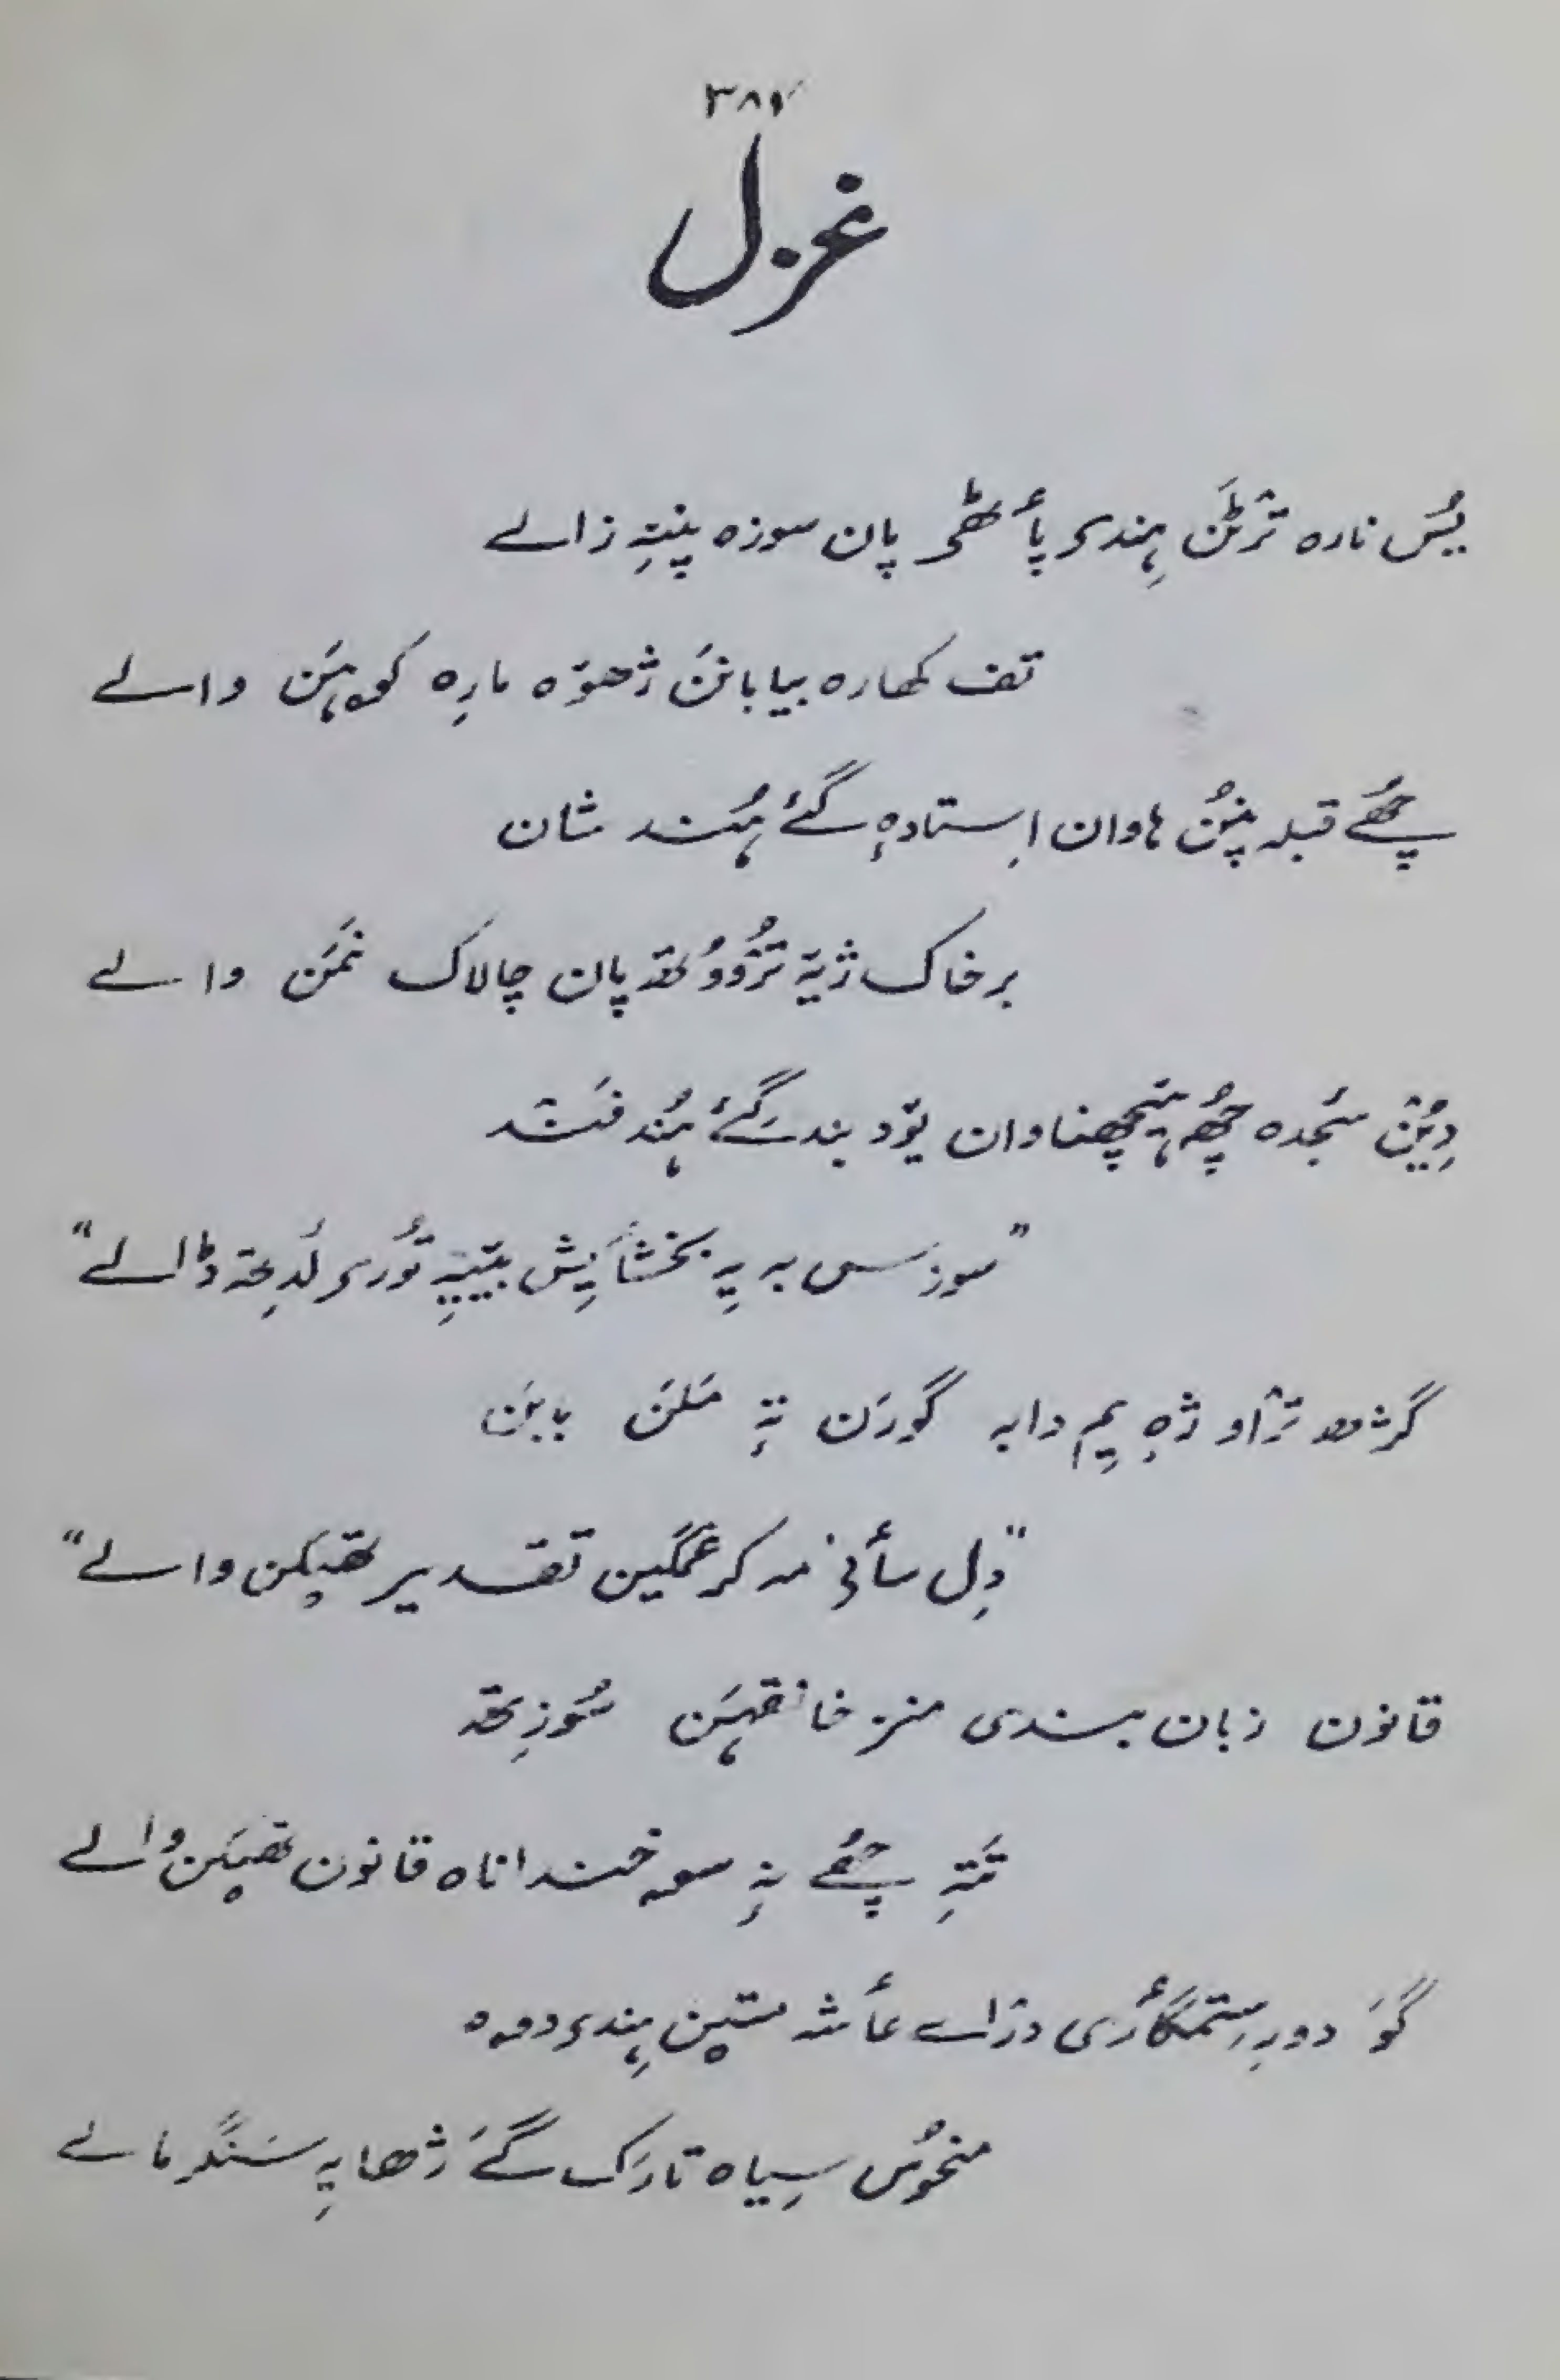 ۳۸۷
غزل
یُس نارہ ترٛٹَن ہِندۍ پأٹھۍ پان سوزہ پنتہِ زالے
تف کھارہ بیابانَن ژھوٚہ مارِہ کوہَن والے
چھُے قبلہ پنُن ہاوان اِستادہٕ گئے ہُند شان
بر خاک ژیہِ ترٛووُتھ پان چالاک نمَن والے
دِیُن سجدہ چھُے ہیٚچھناوان یوٚد بندگئے ہُند فن تہٕ
"سوزس بہ یہِ بخشٲیِش بییہِ توٗرۍ لَدِتھ ڈالے"
گرٛٹھ ترٛاو ژہٕ یِم دابہ گورَن تہٕ مَلَن بابَن
"دِل سأنۍ مہ کر غمگین تقدیر تھپکن والے"
قانون زبان بندی منز خانقہَن سوٗزِتھ
تَتہِ چھُے نہٕ سوہ خنداناہ قانون تھپکن والے
گوٚ دورِ ستمگأری دراے عأشہ متین ہِندۍ دوہ
منحوٗس سِیاہ تارَک گے ژھایہِ سَنگرمالے